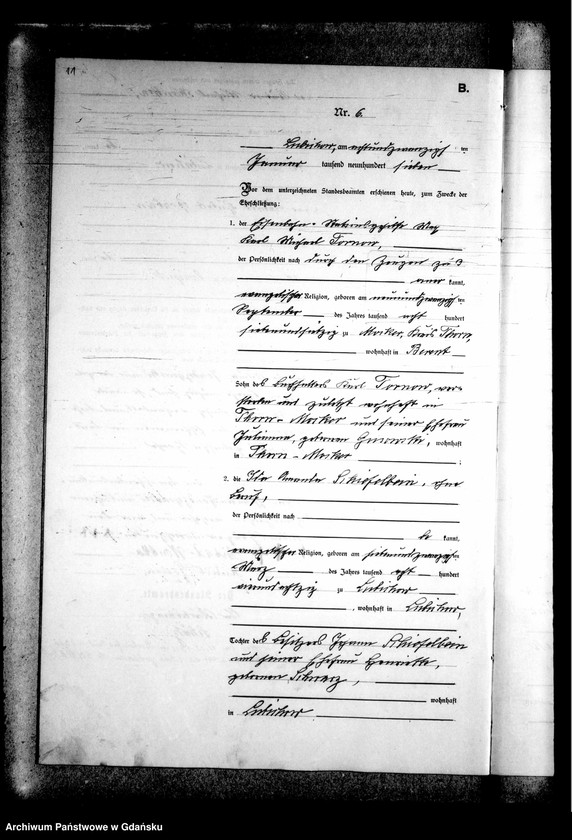 11
B.
Nr. 6.
Lubichow, am achtundzwanzigsten
Januar tausend neunhundert sieben
Vor dem unterzeichneten Standesbeamten erschienen heute, zum Zwecke der
Eheschließung:
1. der Eisenbahn- Max
Karl Michael Tornow,
der Persönlichkeit nach durch den Zeugen zu 3
aner kannt,
evangelischer Religion, geboren am neunundzwanzigsten
September des Jahres tausend acht hundert
siebenundsiebzig zu Mocker, Kreis Thorn,
wohnhaft in Berent
Sohn des Karl Tornow, ver-
storben und zuletzt wohnhaft in
Thorn - Mocker und seiner Ehefrau
Julianna, geborenen , wohnhaft
in Thorn - Mocker ;
2. die Ida Amanda Schiefelbein, ohne
Beruf,
der Persönlichkeit nach
be kannt,
evangelischer Religion, geboren am siebenundzwanzigsten
März des Jahres tausend acht hundert
vierundachtzig zu Lubichow
, wohnhaft in Lubichow,
Tochter des Besitzers Johann Schiefelbein
und seiner Ehefrau Henriette,
geborenen Schwarz,
wohnhaft
in Lubichow
Archiwum Państwowe w Gdańsku